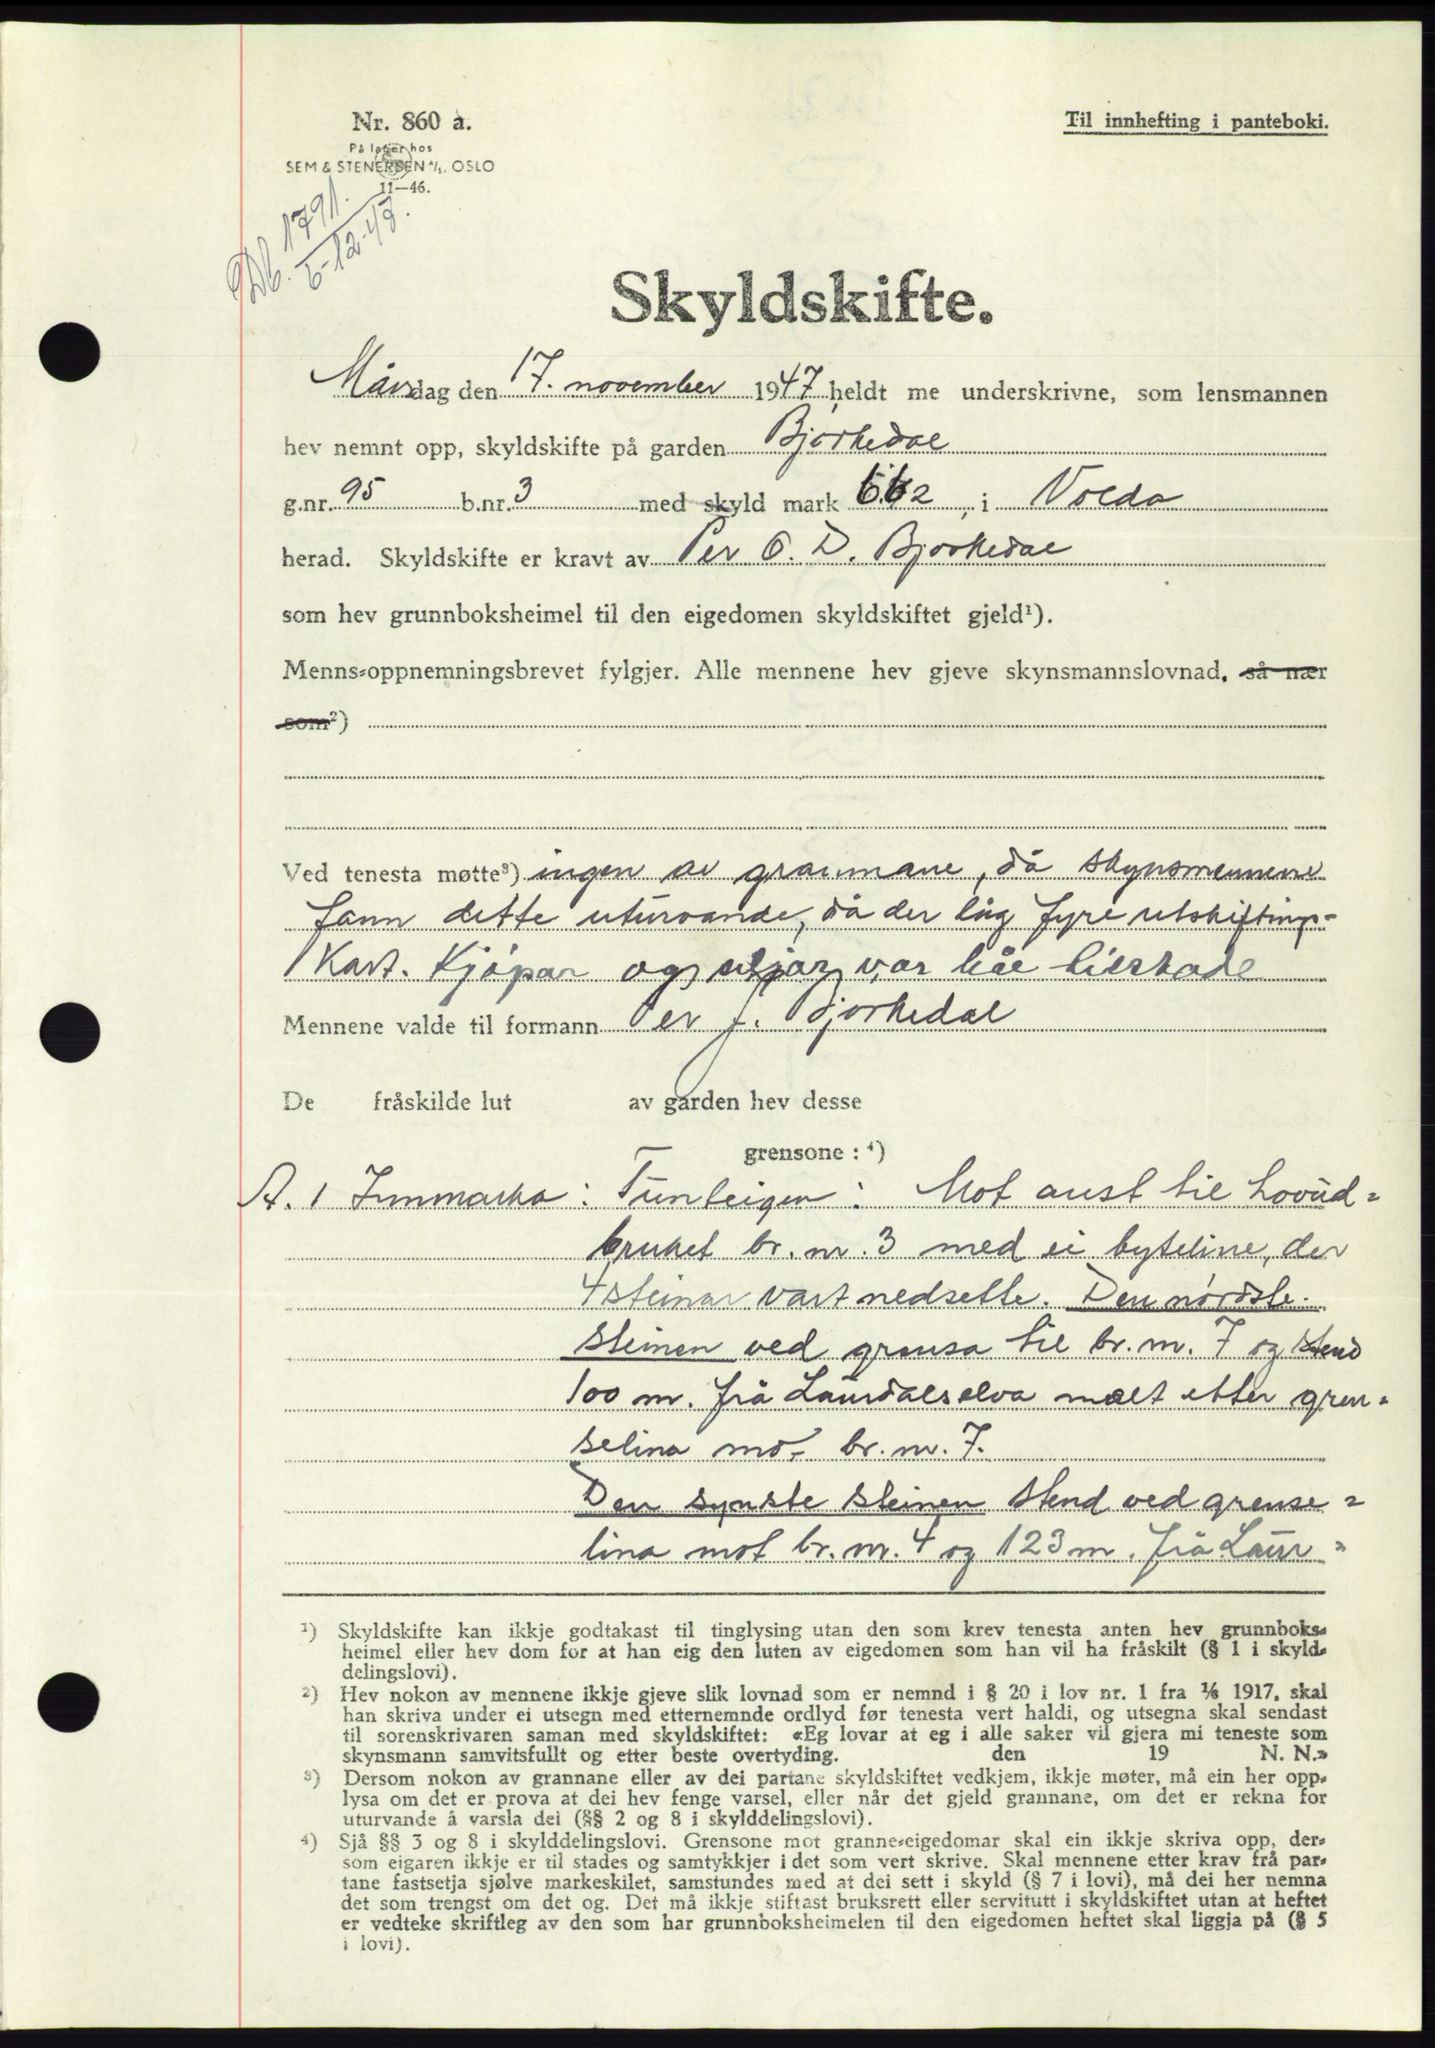 Nr. 860 a.
Til innhefting i panteboki.
På lager hos
SEM & STENERSEN A/S, OSLO
11—46.
Db. 1791.
6-12-47.
Skyldskifte.
Måndag den 17. november 1947 heldt me underskrivne, som lensmannen
hev nemnt opp, skyldskifte på garden Bjørkedal
g.nr. 95 b.nr. 3 med skyld mark 6.62, i Volda
herad. Skyldskifte er kravt av Per O. D. Bjørkedal
som hev grunnboksheimel til den eigedomen skyldskiftet gjeld¹).
Menns-oppnemningsbrevet fylgjer. Alle mennene hev gjeve skynsmannslovnad, så nær
som²)
Ved tenesta møtte³) ingen av grannane, då skynsmennene
fann dette uturvande, då der låg fyre utskiftings-
Kart. Kjøpar og seljar var båe tilstade
Mennene valde til formann Per J. Bjørkedal
De fråskilde lut av garden hev desse
grensone : ⁴)
A. 1 Innmarka : Tunteigen : Mot aust til hovud=
bruket br. nr. 3 med ei byteline, der
4 steinar vart nedsette. Den nørdste
steinen ved grensa til br. nr. 7 og stend
100 m. frå Laurdalselva målt etter gren=
selina mot br. nr. 7.
Den synste steinen stend ved grense=
lina mot br. nr. 4 og 123 m. frå Laur=
¹) Skyldskifte kan ikkje godtakast til tinglysing utan den som krev tenesta anten hev grunnboks-
heimel eller hev dom for at han eig den luten av eigedomen som han vil ha fråskilt (§ 1 i skyld-
delingslovi).
²) Hev nokon av mennene ikkje gjeve slik lovnad som er nemnd i § 20 i lov nr. 1 fra 1/6 1917, skal
han skriva under ei utsegn med etternemnde ordlyd før tenesta vert haldi, og utsegna skal sendast
til sorenskrivaren saman med skyldskiftet: «Eg lovar at eg i alle saker vil gjera mi teneste som
skynsmann samvitsfullt og etter beste overtyding. den 19 N. N.»
³) Dersom nokon av grannane eller av dei partane skyldskiftet vedkjem, ikkje møter, må ein her opp-
lysa om det er prova at dei hev fenge varsel, eller når det gjeld grannane, om det er rekna for
uturvande å varsla dei (§§ 2 og 8 i skylddelingslovi).
⁴) Sjå §§ 3 og 8 i skylddelingslovi. Grensone mot granne-eigedomar skal ein ikkje skriva opp, der-
som eigaren ikkje er til stades og samtykkjer i det som vert skrive. Skal mennene etter krav frå par-
tane fastsetja sjølve markeskilet, samstundes med at dei sett i skyld (§ 7 i lovi), må dei her nemna
det som trengst om det og. Det må ikkje stiftast bruksrett eller servitutt i skyldskiftet utan at heftet
er vedteke skriftleg av den som har grunnboksheimelen til den eigedomen heftet skal liggja på (§ 5
i lovi).